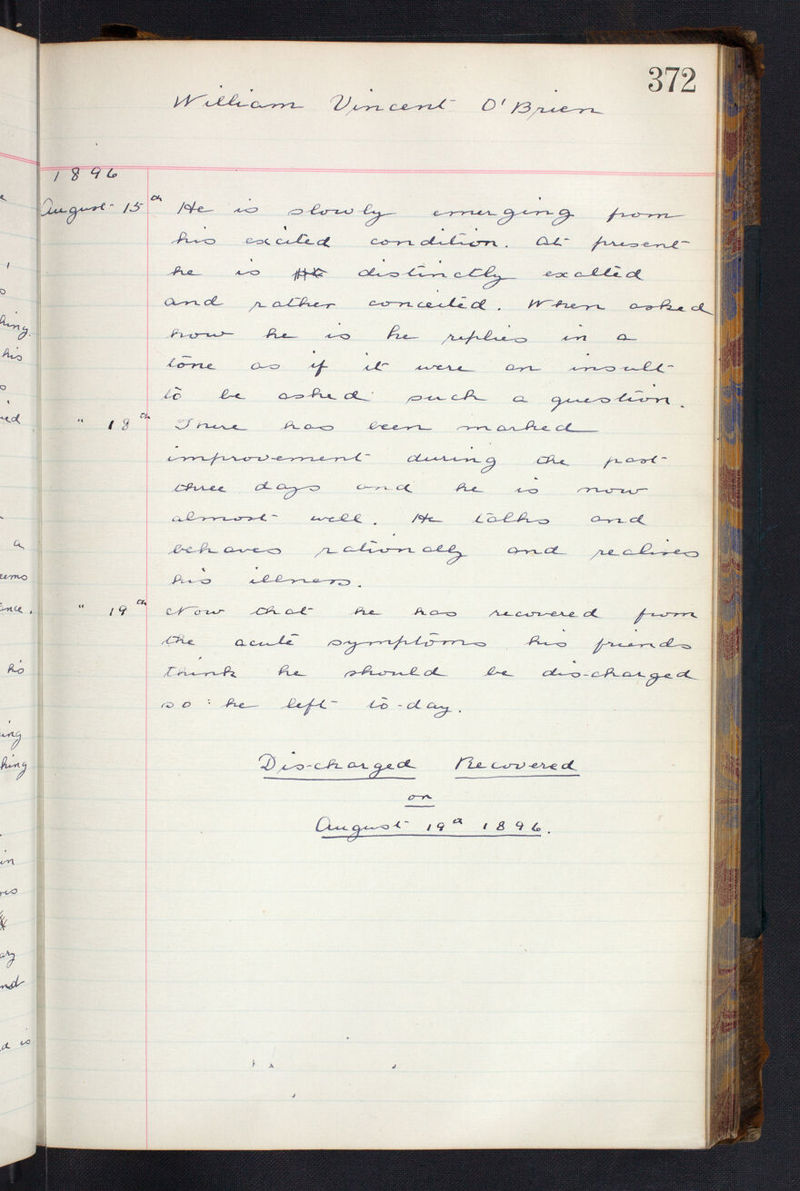 372
William Vincent O'Brien
1896
August 15th He is slowly emerging from
his excited condition. At present
he is distinctly exalted
and rather conceited. When asked
how he is he replies in a
tone as if it were an insult
to be asked such a question.
" 18th There has been marked
improvement during the past
three days and he is now
almost well. He talks and
behaves rationally and realises
his illness.
" 19th Now that he has recovered from
the acute symptoms his friends
think he should be dis-charged
so he left to-day.
Dis-charged Recovered
on
August 19th 1896.